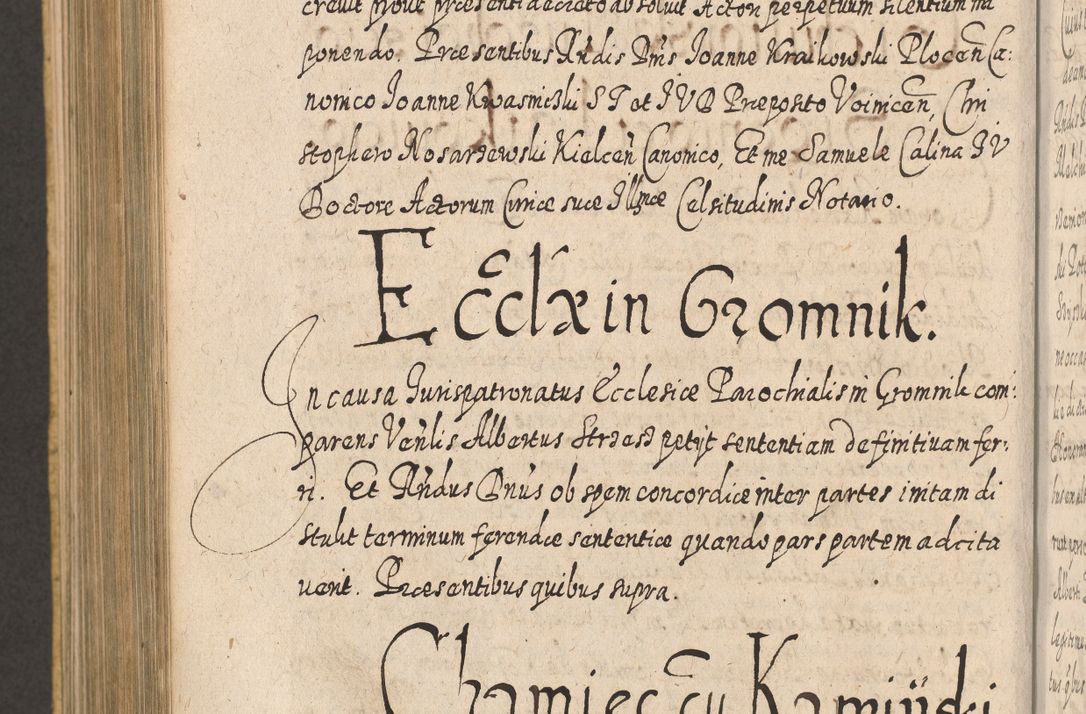 crevit prout præsenti decreto absolvit Actori perpetuum silentium im
ponendo. Præsentibus Rndis Dnis Joanne Kraikowski Plocen Ca:
nonico Joanne Kwasniczki S T et J V D Præposito Voinicen, Chri
stophero Nosarzewski Kielcen Canonico, Et me Samuele Calina J V
Doctore Actorum Curiæ suæ Illmæ Celsitudinis Notario.
Ecclæ in Gromnik.
In causa Jurispatronatus Ecclesiæ Parochialis in Gromnik com:
parens Venlis Albertus petijt sententiam definitivam fer:
ri. Et Rndus Dnus ob spem concordiæ inter partes initam di
stulit terminum ferendæ sententiæ quando pars partem adcita
verit. Præsentibus quibus supra.
Chamiec cu Kamiński